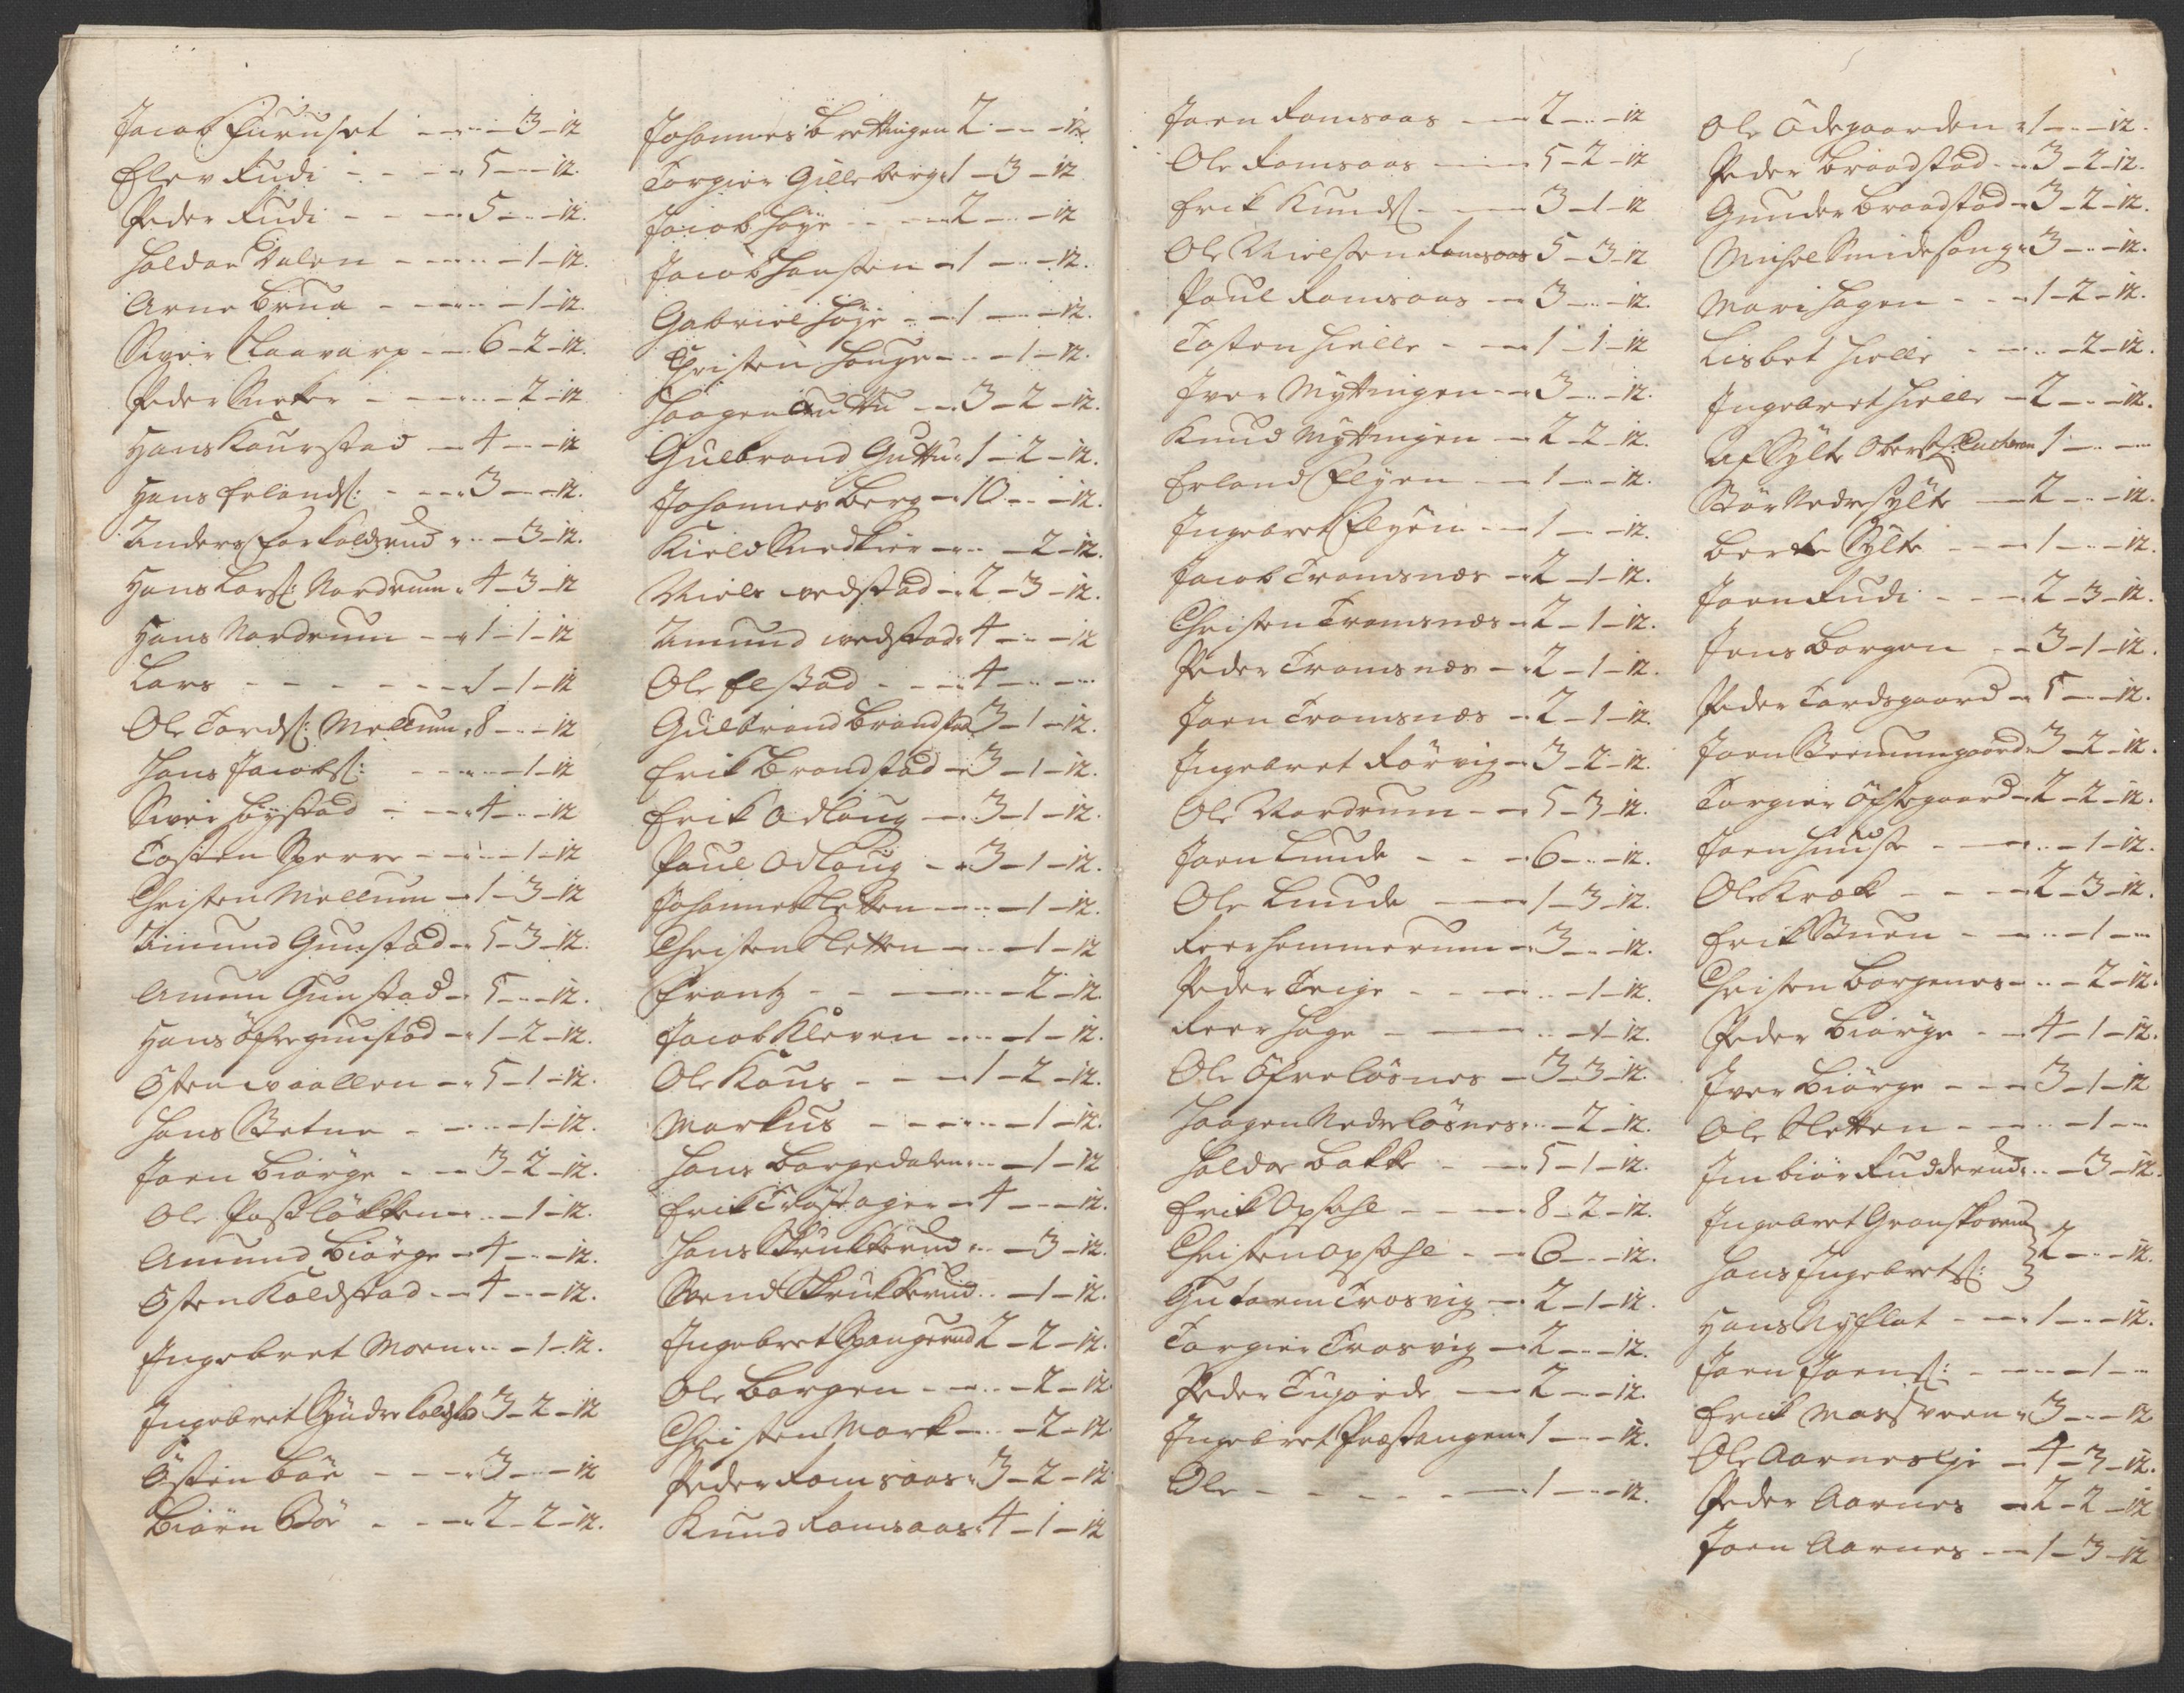 Jacob Furuset - - - - 3 - 12
Elev Rudi - - - 5 - - - 12.
Peder Rudi - - - 5 - - - 12.
Haldor Dalen - - - - - 1 - 12.
Arne Brua - - - - - 1 - 12.
Siver - - 6 - 2 - 12.
Peder - - - - - 2 - 12
Hans Kaurstad - 4 - - - 12
Hans Erlands: - - - 3 - - - 12.
Anders - - 3 - 12.
Hans Lars: Nordrum - 4 - 3 - 12
Hans Nordrum - - 1 - 1 - 12
Lars - - - - - - 1 - 1 - 12
Ole Tords: Mellum - 8 - - - 12
Hans Jacobs: - - - - 1 - 12
Siver Høystad - - - 4 - - - 12
Tosten Sperre - - - - 1 - 12
Christen Mellum - 1 - 3 - 12
Amund Gunstad - 5 - 3 - 12.
Amun Gunstad - 5 - - - 12.
Hans Øfregunstad - 1 - 2 - 12.
Østen waallen - 5 - 1 - 12.
Hans - - - - 1 - 12.
Joen Biørge - - 3 - 2 - 12.
Ole Postløkken - - - 1 - 12.
Amund Biørge - 4 - - - 12.
Østen Koldstad - - 4 - - - 12.
Ingebret Moen - - - 1 - 12.
Ingebret Søndre Koldstad 3 - 2 - 12
Østen Bøe - - - 3 - - - 12
Biørn Bøe - - - 2 - 2 - 12.
Johannes Brettingen 2 - - - 12.
Torgier Gilleberg - 1 - 3 - 12
Jacob Høye - - - 2 - - - 12
Jacob Hansten - 1 - - - 12.
Gabriel Høye - - 1 - - - 12.
Christen Houge - - - 1 - 12.
Haagen Guttu - - 3 - 2 - 12.
Gulbrand Guttu - 1 - 2 - 12.
Johannes Berg - 10 - - - 12.
Kield - - - 2 - 12.
Niels wedstad - 2 - 3 - 12.
Amund wedstad - 4 - - - 12
Ole Elstad - - - 4 - - - -
Gulbrand Brandstad 3 - 1 - 12.
Erik Brandstad - 3 - 1 - 12.
Erik Odloug - 3 - 1 - 12.
Paul Odloug - - 3 - 1 - 12.
Johannes Sletten - - - 1 - 12.
Christen Sletten - - - 1 - 12
Frantz - - - - - 2 - 12.
Jacob Kleven - - - 1 - 12.
Ole Kaus - - - 1 - 2 - 12.
Markus - - - - - 1 - 12.
Hans Borgedalen - - - 1 - 12
Erik - 4 - - - 12.
Hans Skrukkerud - - - 3 - 12.
Svend Skrukkerud - - 1 - 12.
Ingebret Spangerud 2 - 2 - 12.
Ole Borgen - - - - 2 - 12
Christen Mork - - - 2 - 12
Peder Romsaas - 3 - 2 - 12
Knud Romsaas - 4 - 1 - 12
Joen Romsaas - - - 2 - - - 12
Ole Romsaas - - - 5 - 2 - 12
Erik Knuds: - - - 3 - 1 - 12
Ole Mielsten Romsaas 5 - 3 - 12
Paul Romsaas - - 3 - - - 12.
Tosten Hielle - - - 1 - 1 - 12
Iver Myttingen - - 3 - - - 12.
Knud Myttingen - 2 - 2 - 12.
Erland Flyen - - - 1 - - - 12.
Ingebret Flyen - - - 1 - - - 12.
Jacob Tromsnæs - 2 - 1 - 12.
Christen Tromsnæs - 2 - 1 - 12.
Peder Tromsnæs - - 2 - 1 - 12.
Joen Tromsnæs - 2 - 1 - 12.
Ingebret Rørvig - 3 - 2 - 12.
Ole Nordrum - - 5 - 3 - 12.
Joen Lunde - - - 6 - - - 12.
Ole Lunde - - - 1 - 3 - 12.
Roer Hommerum - 3 - - - 12.
Peder Teige - - - - - 1 - 12.
Roer Hage - - - - - 1 - 12.
Ole Øfreløsnes - 3 - 3 - 12.
Haagen Nedreløsnes - - 2 - 12.
Haldor Bakke - - - 5 - 1 - 12.
Erik Opsahl - - - 8 - 2 - 12.
Christen Opsahl - - - 6 - - - 12.
Gutorm Trosvig - 2 - 1 - 12.
Torgier Trosvig - 2 - - - 12.
Peder - - 2 - - - 12.
Ingebret Præstangen - 1 - - - 12.
Ole - - - - - - 1 - - - 12.
Ole Ødegaarden - 1 - - - 12.
Peder Braadstad - - 3 - 2 - 12.
Gunder Braadstad - 3 - 2 - 12.
Michel Smidesang - 3 - - - 12.
Mari Hagen - - - 1 - 2 - 12.
Lisbet Hielle - - - - 2 - 12.
Ingebret Hielle - 2 - - - 12.
Af Sylte 1 - - - -
Nedresylte - 2 - - - 12.
Sylte - - - 1 - - - 12.
Joen Rudi - - - 2 - 3 - 12.
Jens Borgen - - 3 - 1 - 12.
Peder Tordsgaard - 5 - - - 12.
Joen 3 - 2 - 12.
Torgier Øfstegaard - 2 - 2 - 12.
Joen - - - - 1 - 12.
Ole Kræk - - - 2 - 3 - 12.
Erik - - - - 1 - -
Christen Borgenes - - - 2 - 12.
Peder Biørge - - 4 - 1 - 12.
Iver Biørge - - - 3 - 1 - 12
Ole Sletten - - - - 1 - -
Rudderud - - 3 - 12.
Ingebret
Hans Ingebrets: } 2 - - - 12.
Hans Nyflat - - - 1 - - - 12.
Joen Joens: - - - - - 1 - -
Erik - 3 - - - 12
Ole Aarnes - 4 - 3 - 12.
Peder Aarnes - 2 - 2 - 12
Joen Aarnes - - 1 - 3 - 12